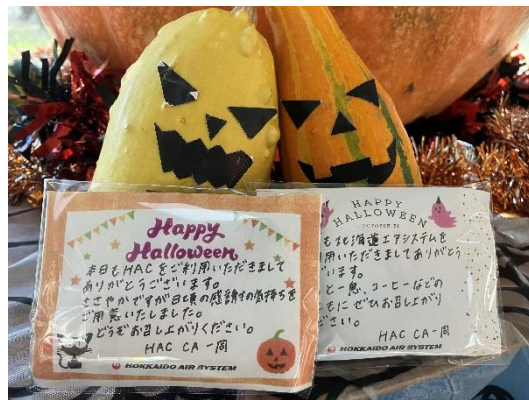 Happy
Halloween
本日もHACをご利用いただきまして
ありがとうございます。
ささやかですが日頃の感謝の気持ちを
ご用意いたしました。
どうぞお召し上がりください。
HAC CA一同
HOKKAIDO AIR SYSTEM
HAPPY
HALLOWEEN
OCTOBER 31
も北海道エアシステムを
用いただきましてありがとう
います。
と一息、コーヒーなどの
もに ぜひお召し上がり
ださい。
HAC CA一同
HOKKAIDO AIR SYSTEM